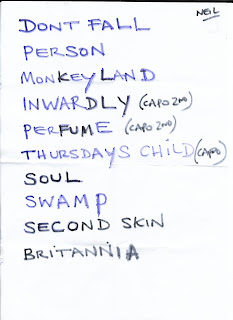 NEIL
DONT FALL
PERSON
MONKEYLAND
INWARDLY (CAPO 2ND)
PERFUME (CAPO 2ND)
THURSDAYS CHILD (CAPO)
SOUL
SWAMP
SECOND SKIN
BRITANNIA